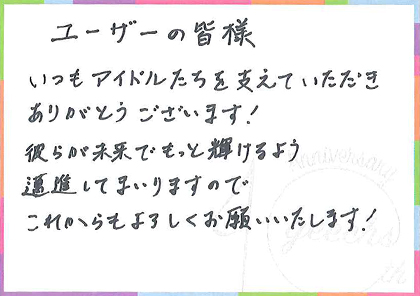 ユーザーの皆様
いつもアイドルたちを支えていただき
ありがとうございます!
彼らが未来でもっと輝けるよう
邁進してまいりますので
これからもよろしくお願いいたします!
Anniversary